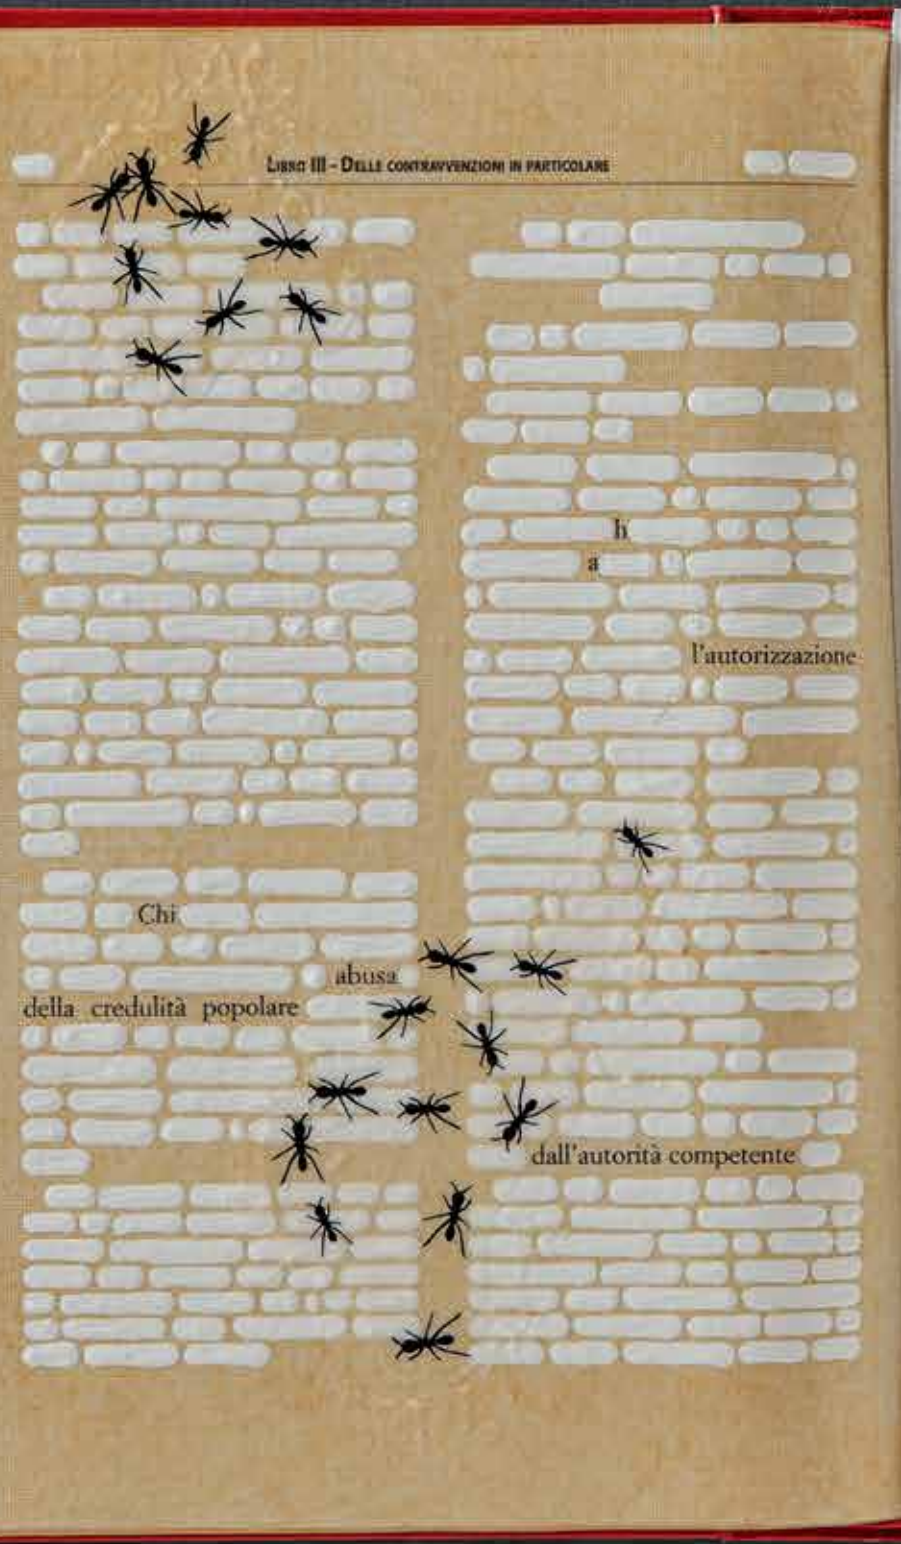 LIBRO III - DELLE CONTRAVVENZIONI IN PARTICOLARE
Chi
abusa
della credulità popolare
h
a
l'autorizzazione
dall'autorità competente